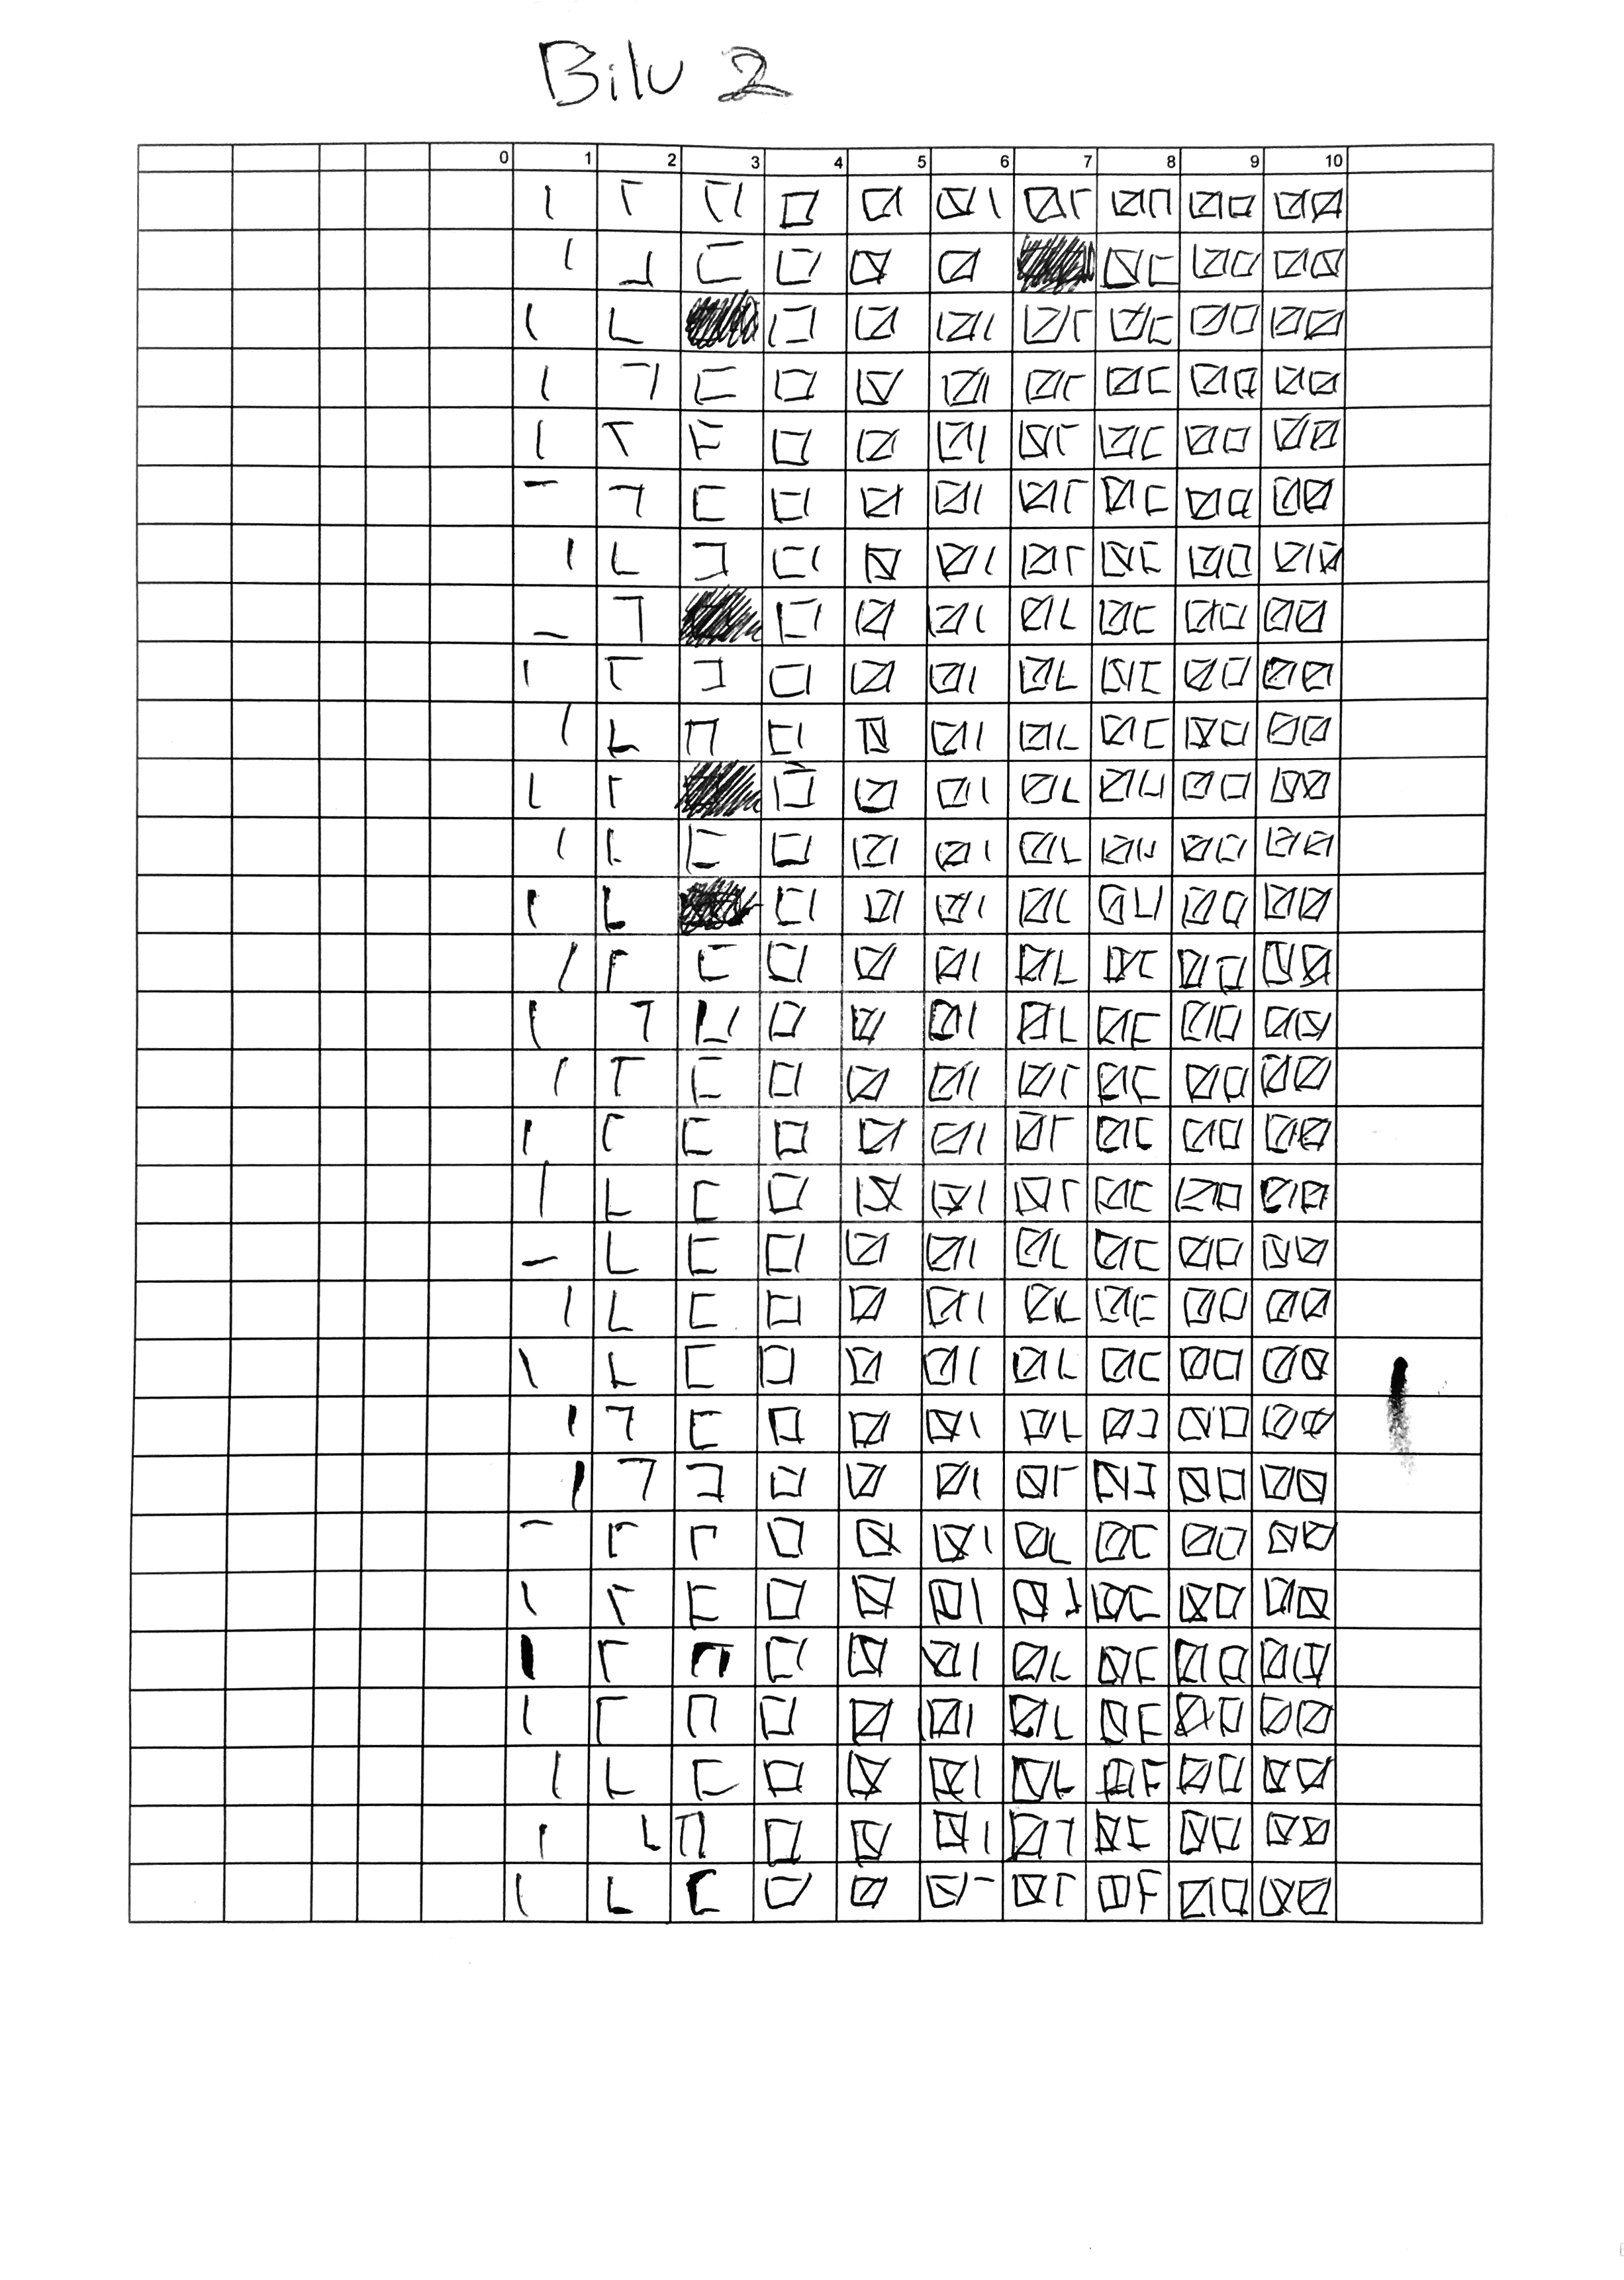 Bilu 2
0 1 2 3 4 5 6 7 8 9 10